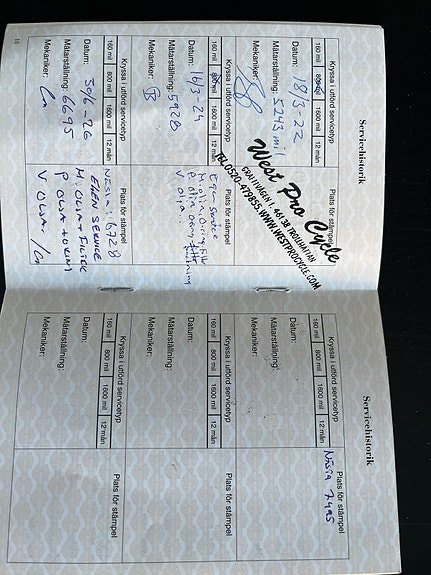 Servicehistorik
Kryssa i utförd servicetyp
160 mil
800 mil
1600 mil
12 mån
Datum: 18/3-22
Mätarställning: 5243 mil
Mekaniker:
Plats för stämpel
West Pro Cycle
GRAVITVÄGEN 1, 461 38 TROLLHÄTTAN
TEL 0520-479855. WWW.WESTPROCYCLE.COM
Kryssa i utförd servicetyp
160 mil
800 mil
1600 mil
12 mån
Datum: 16/3-24
Mätarställning: 5928
Mekaniker: B
Plats för stämpel
Egen Service
V. olja.
Kryssa i utförd servicetyp
160 mil
800 mil
1600 mil
12 mån
Datum: 30/6-26
Mätarställning: 6695
Mekaniker:
Plats för stämpel
Nästa: 6728
EGEN SERVICE
M. OLJA + FILTER
V OLJA.
16
Servicehistorik
Kryssa i utförd servicetyp
160 mil
800 mil
1600 mil
12 mån
Datum:
Mätarställning:
Mekaniker:
Plats för stämpel
Nästa 7495
Kryssa i utförd servicetyp
160 mil
800 mil
1600 mil
12 mån
Datum:
Mätarställning:
Mekaniker:
Plats för stämpel
Kryssa i utförd servicetyp
160 mil
800 mil
1600 mil
12 mån
Datum:
Mätarställning:
Mekaniker:
Plats för stämpel